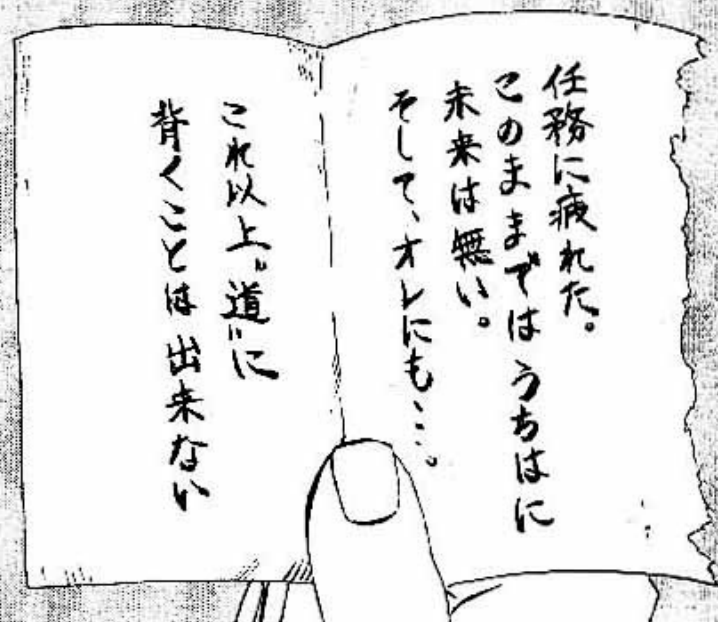 任務に疲れた。
このままではうちはに
未来は無い。
そして、オレにも…。
これ以上〝道〟に
背くことは出来ない